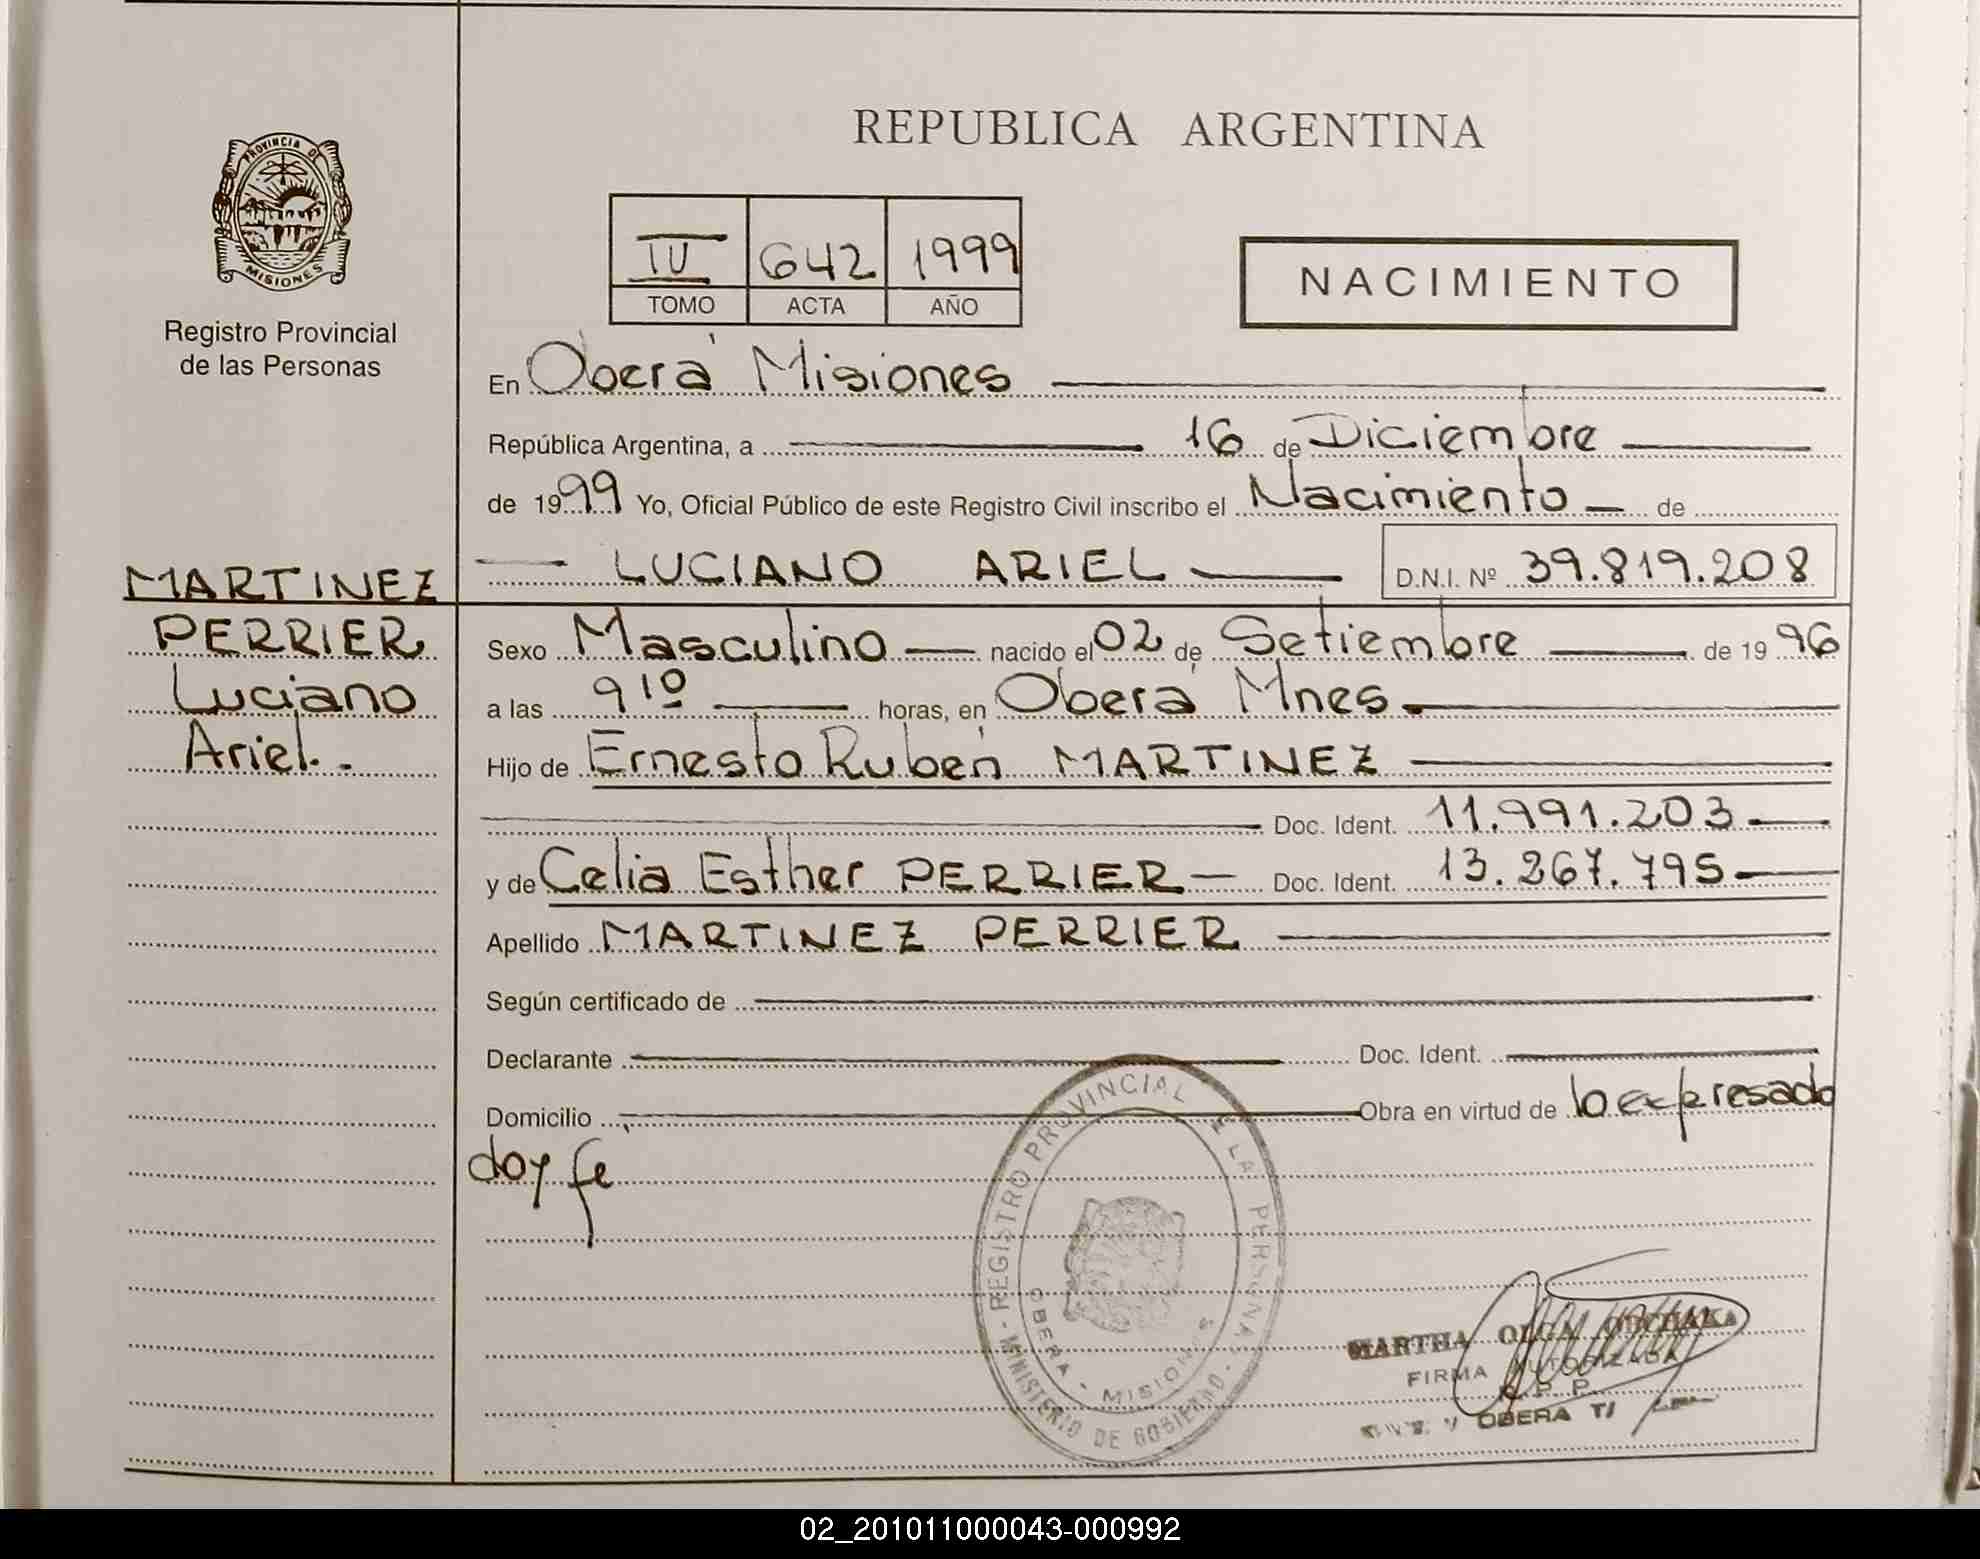 REPUBLICA ARGENTINA
PROVINCIA DE
MISIONES
Registro Provincial
de las Personas
IV 642 1999
TOMO ACTA AÑO
NACIMIENTO
En Oberá Misiones
República Argentina, a 16 de Diciembre
de 1999 Yo, Oficial Público de este Registro Civil inscribo el Nacimiento de
LUCIANO ARIEL D.N.I. Nº 39.819.208
MARTINEZ
PERRIER
Luciano
Ariel.-
Sexo Masculino nacido el 02 de Setiembre de 1996
a las 9 10 horas, en Oberá Mnes
Hijo de Ernesto Rubén MARTINEZ
Doc. Ident. 11.991.203
y de Celia Esther PERRIER Doc. Ident. 13.267.795
Apellido MARTINEZ PERRIER
Según certificado de
Declarante Doc. Ident.
Domicilio Obra en virtud de lo expresado
doy fe
REGISTRO PROVINCIAL E LA PERSONAS
OBERA - MISIONES
MINISTERIO DE GOBIERNO
MARTHA OLGA
FIRMA AUTORIZADA
R. P. P.
OBERA
02_201011000043-000992